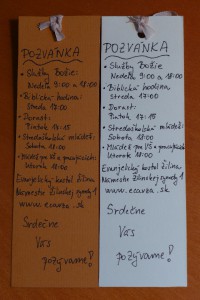 POZVÁNKA
• Služby Božie:
Nedeľa 9:00 a 18:00
• Biblická hodina:
Streda 17:00
• Dorast:
Piatok 17:15
• Stredoškolská mládež:
Sobota 18:00
• Mládež pre VŠ a pracujúcich:
Utorok 18:00
Evanjelický kostol Žilina
Námestie Žilinskej synody 1
www.ecavza.sk
Srdečne
Vás
pozývame!
POZVÁNKA
• Služby Božie:
Nedeľa 9:00 a 18:00
• Biblická hodina:
Streda 17:00
• Dorast:
Piatok 17:15
• Stredoškolská mládež:
Sobota 18:00
• Mládež pre VŠ a pracujúcich:
Utorok 18:00
Evanjelický kostol Žilina
Námestie Žilinskej synody 1
www.ecavza.sk
Srdečne
Vás
pozývame!